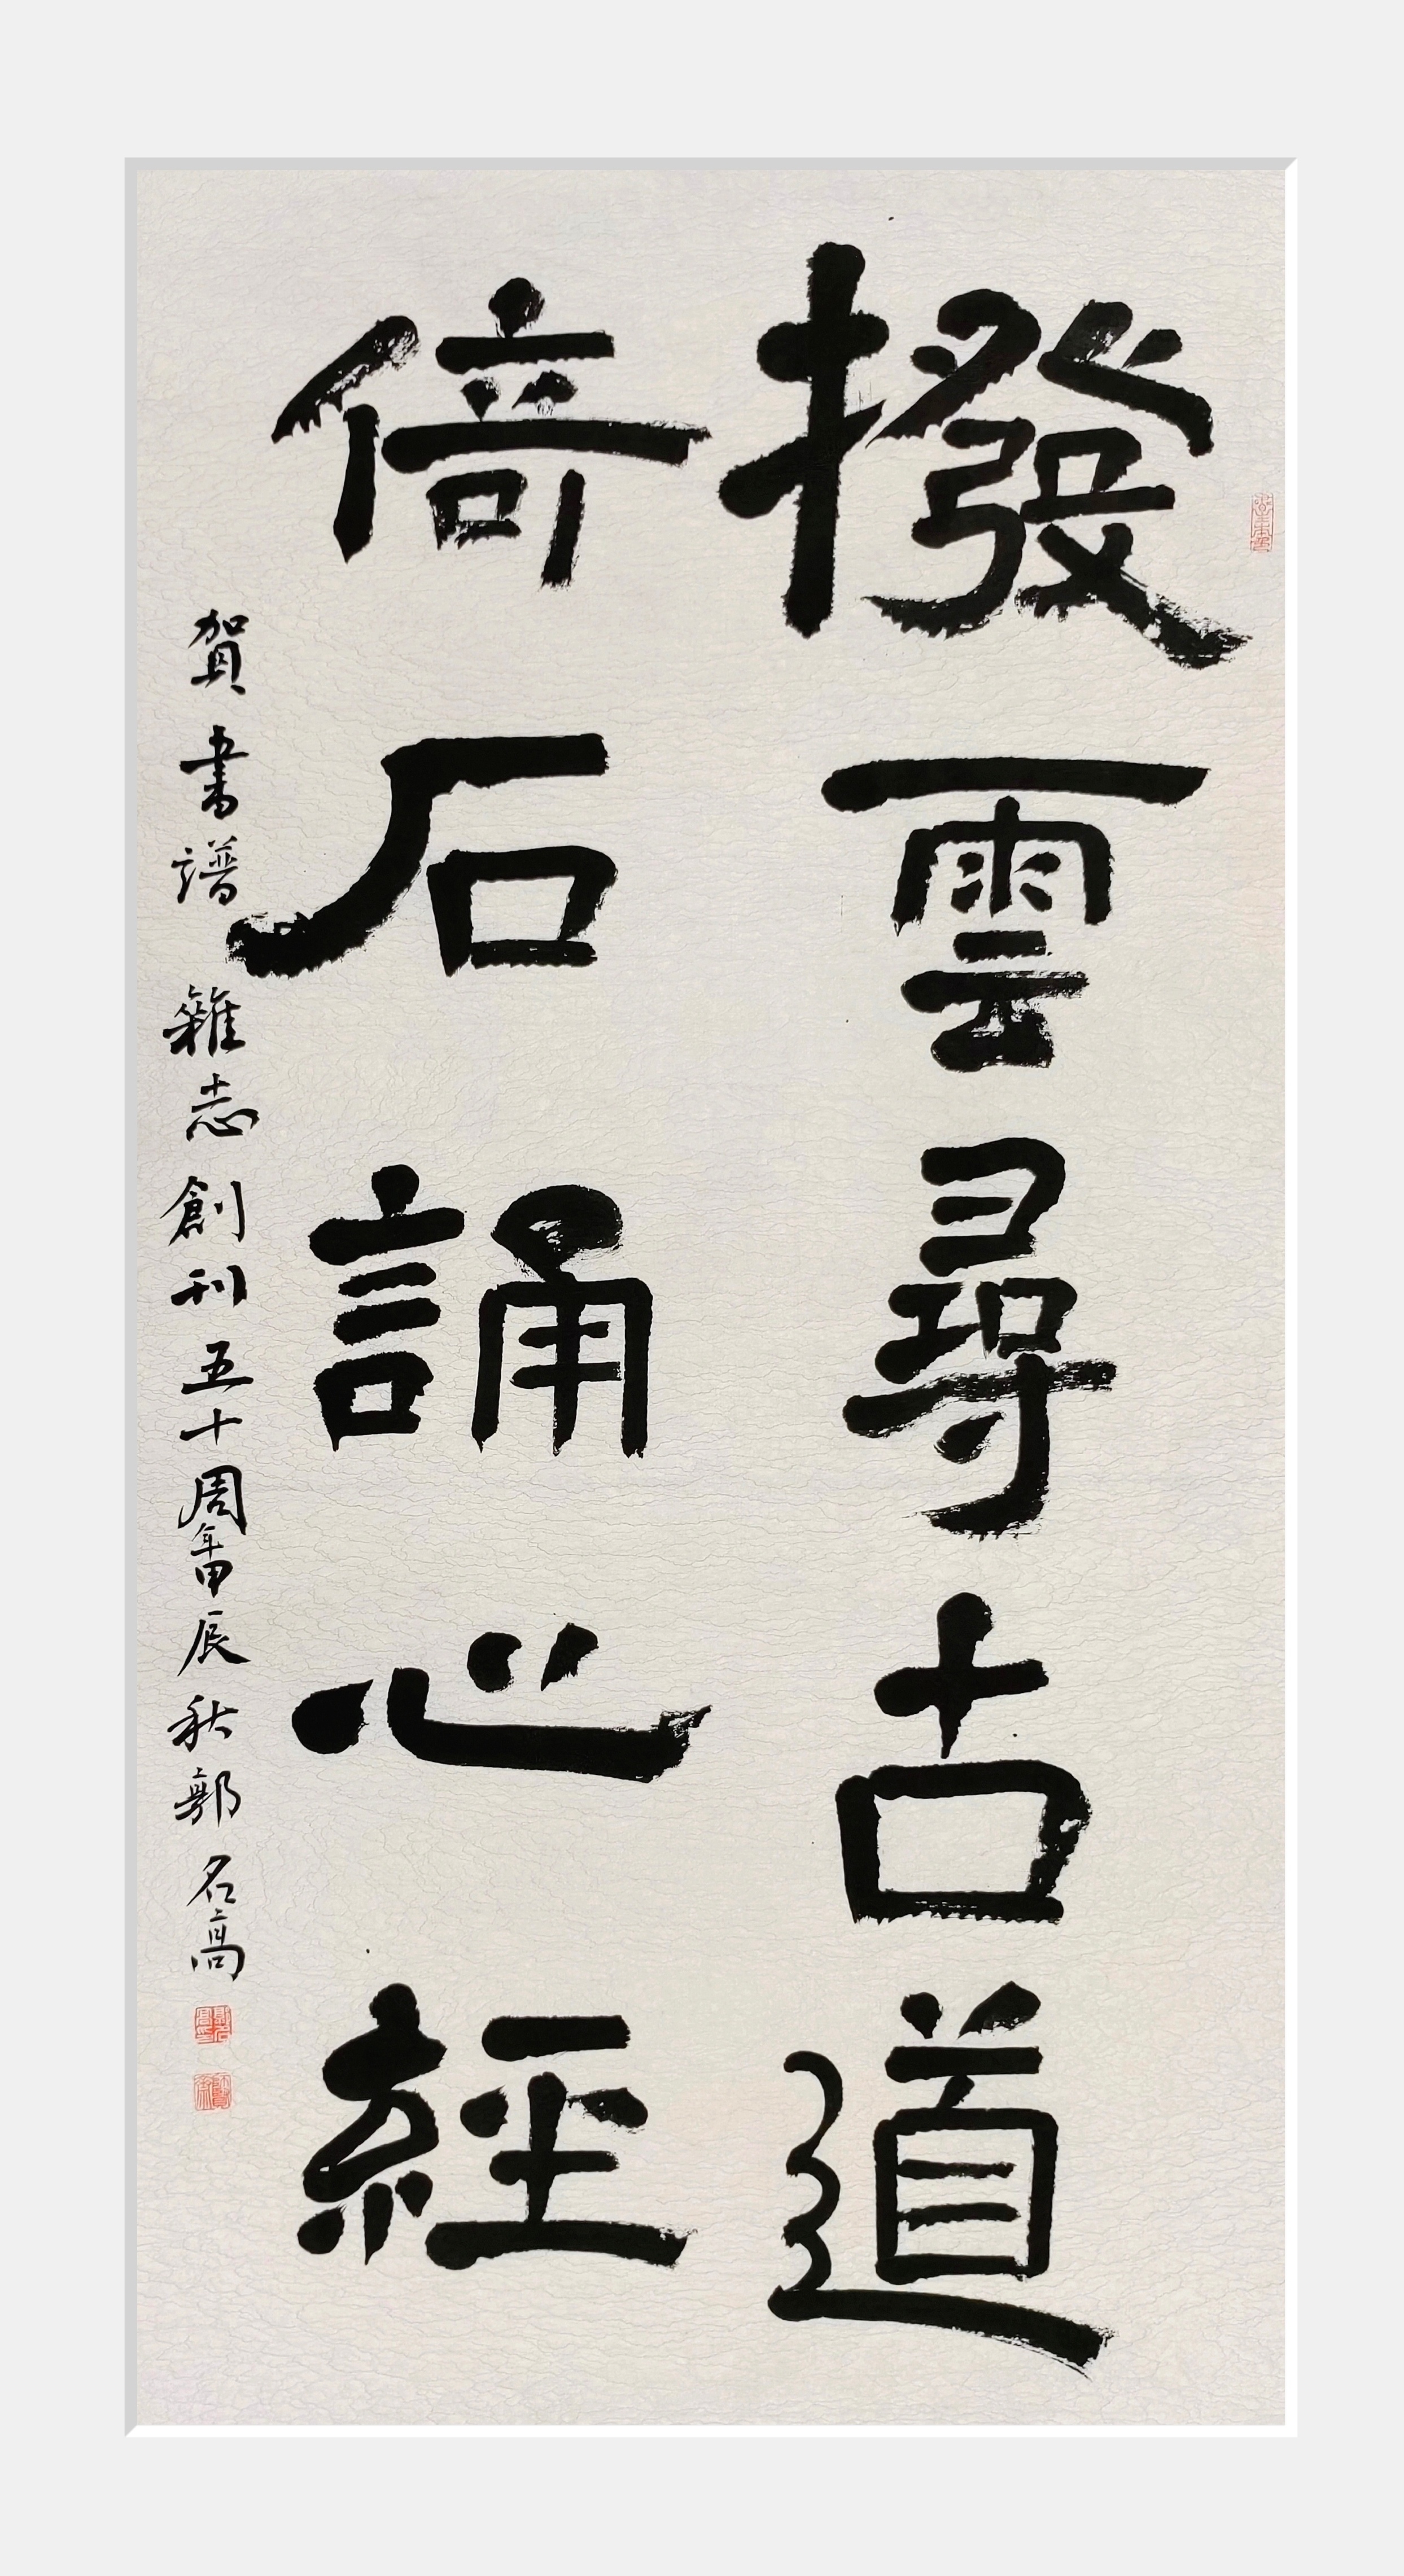 撥雲尋古道
倚石誦心經
賀書譜雜志創刊五十周年甲辰秋郭名高